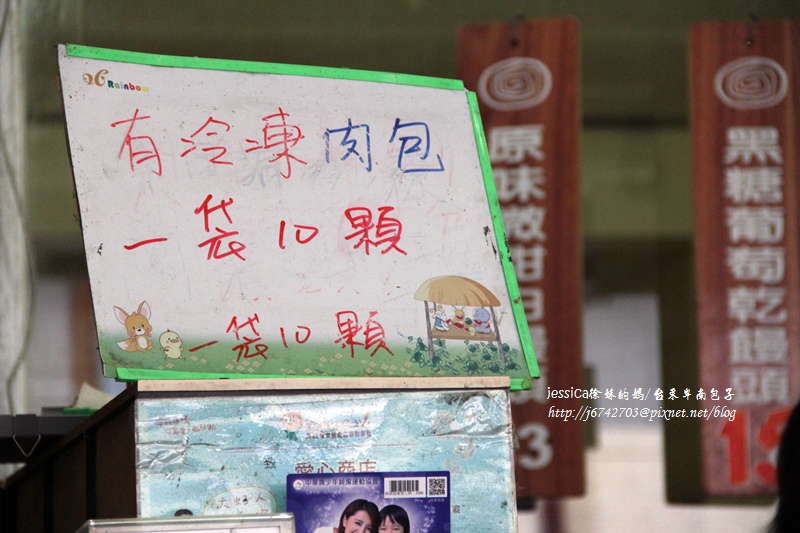 Rainbow
有冷凍肉包
一袋10顆
一袋10顆
原味微甜白饅頭
13
黑糖葡萄乾饅頭
愛心商店
jessica徐妹的媽/台東卑南包子
http://j6742703@pixnet.net/blog